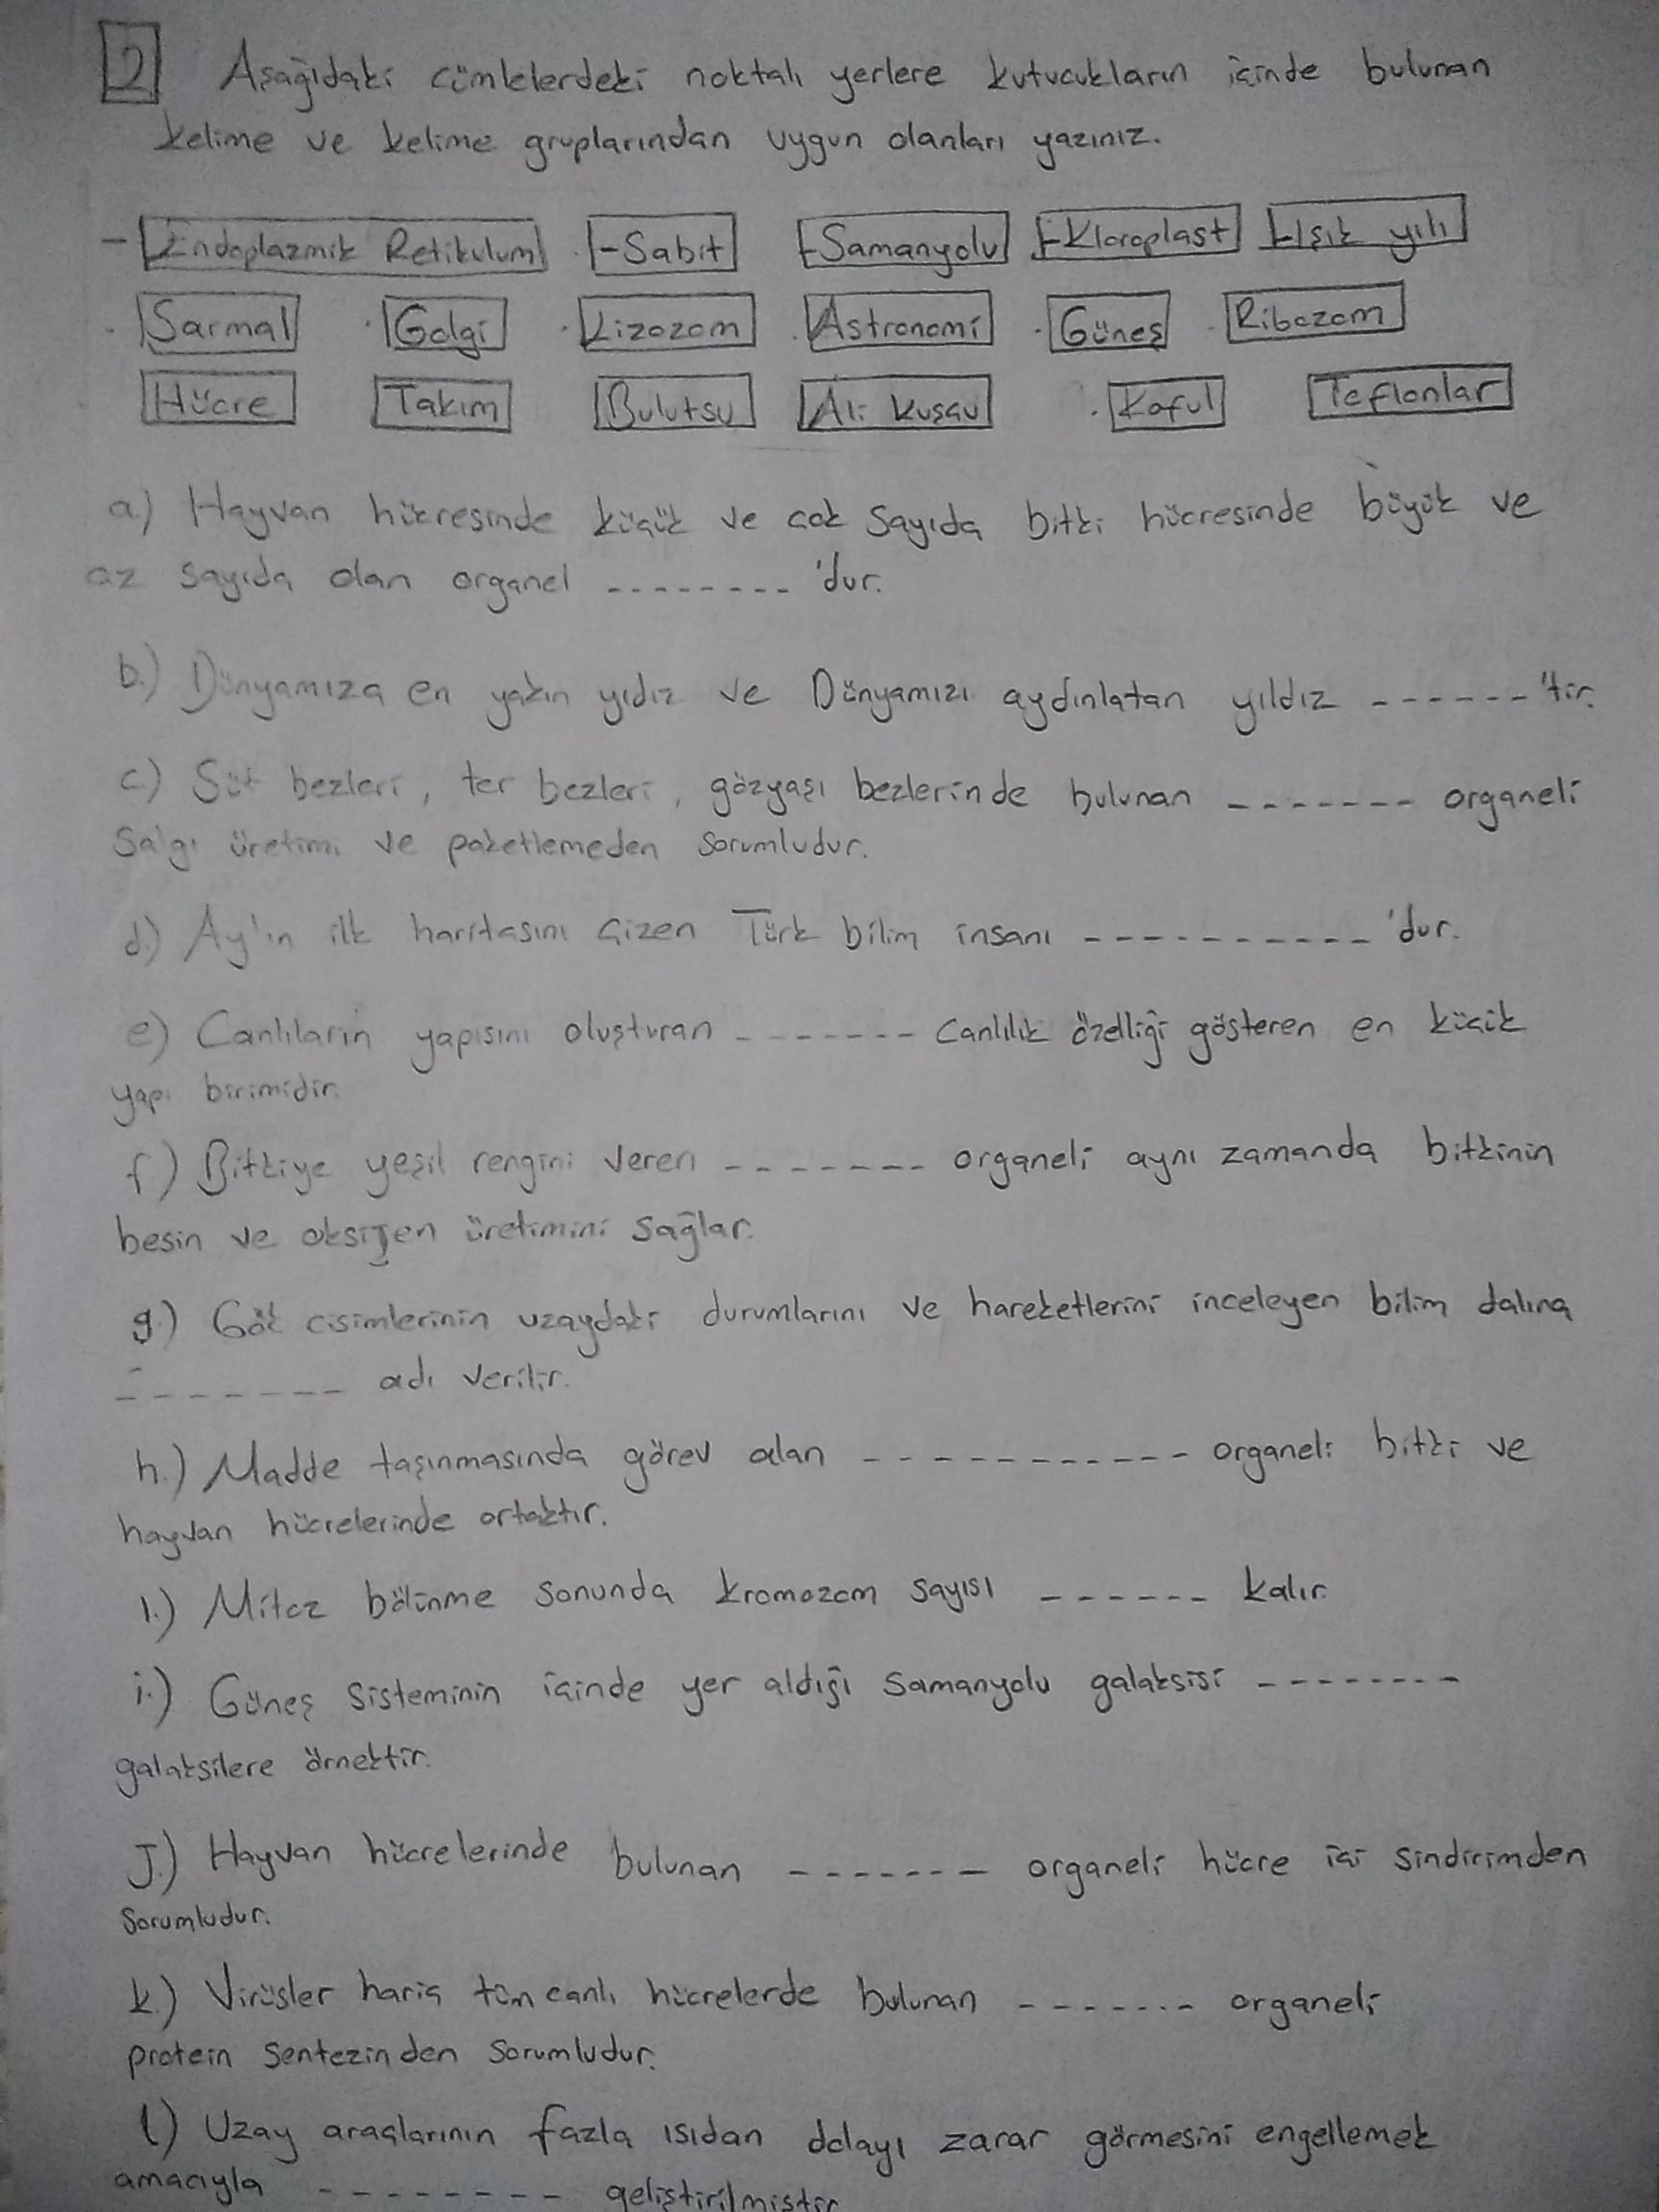 2 Aşağıdaki cümlelerdeki noktalı yerlere kutucukların içinde bulunan
kelime ve kelime gruplarından uygun olanları yazınız.
- Endoplazmik Retikulum -Sabit -Samanyolu -Kloroplast -Işık yılı
Sarmal Golgi Lizozom Astronomi Güneş Ribozom
Hücre Takım Bulutsu Ali Kuşçu Koful Teflonlar
a) Hayvan hücresinde küçük ve çok sayıda bitki hücresinde büyük ve
az sayıda olan organel -------- 'dur.
b.) Dünyamıza en yakın yıdız ve Dünyamızı aydınlatan yıldız ------ 'tir.
c) Süt bezleri, ter bezleri, gözyaşı bezlerinde bulunan ------- organeli
Salgı üretimi ve paketlemeden sorumludur.
d.) Ay'ın ilk haritasını çizen Türk bilim insanı ---------- 'dur.
e) Canlıların yapısını oluşturan ------- canlılık özelliği gösteren en küçük
yapı birimidir.
f) Bitkiye yeşil rengini veren ------- organeli aynı zamanda bitkinin
besin ve oksijen üretimini sağlar.
g.) Gök cisimlerinin uzaydaki durumlarını ve hareketlerini inceleyen bilim dalına
------- adı verilir.
h.) Madde taşınmasında görev alan ----------- organeli bitki ve
hayvan hücrelerinde ortaktır.
ı.) Mitoz bölünme sonunda kromozom sayısı ------ kalır.
i.) Güneş sisteminin içinde yer aldığı Samanyolu galaksisi --------
galaksilere örnektir.
J.) Hayvan hücrelerinde bulunan ------- organeli hücre içi sindirimden
sorumludur.
k.) Virüsler hariç tüm canlı hücrelerde bulunan ------- organeli
protein sentezinden sorumludur.
l) Uzay araçlarının fazla ısıdan dolayı zarar görmesini engellemek
amacıyla -------- geliştirilmiştir